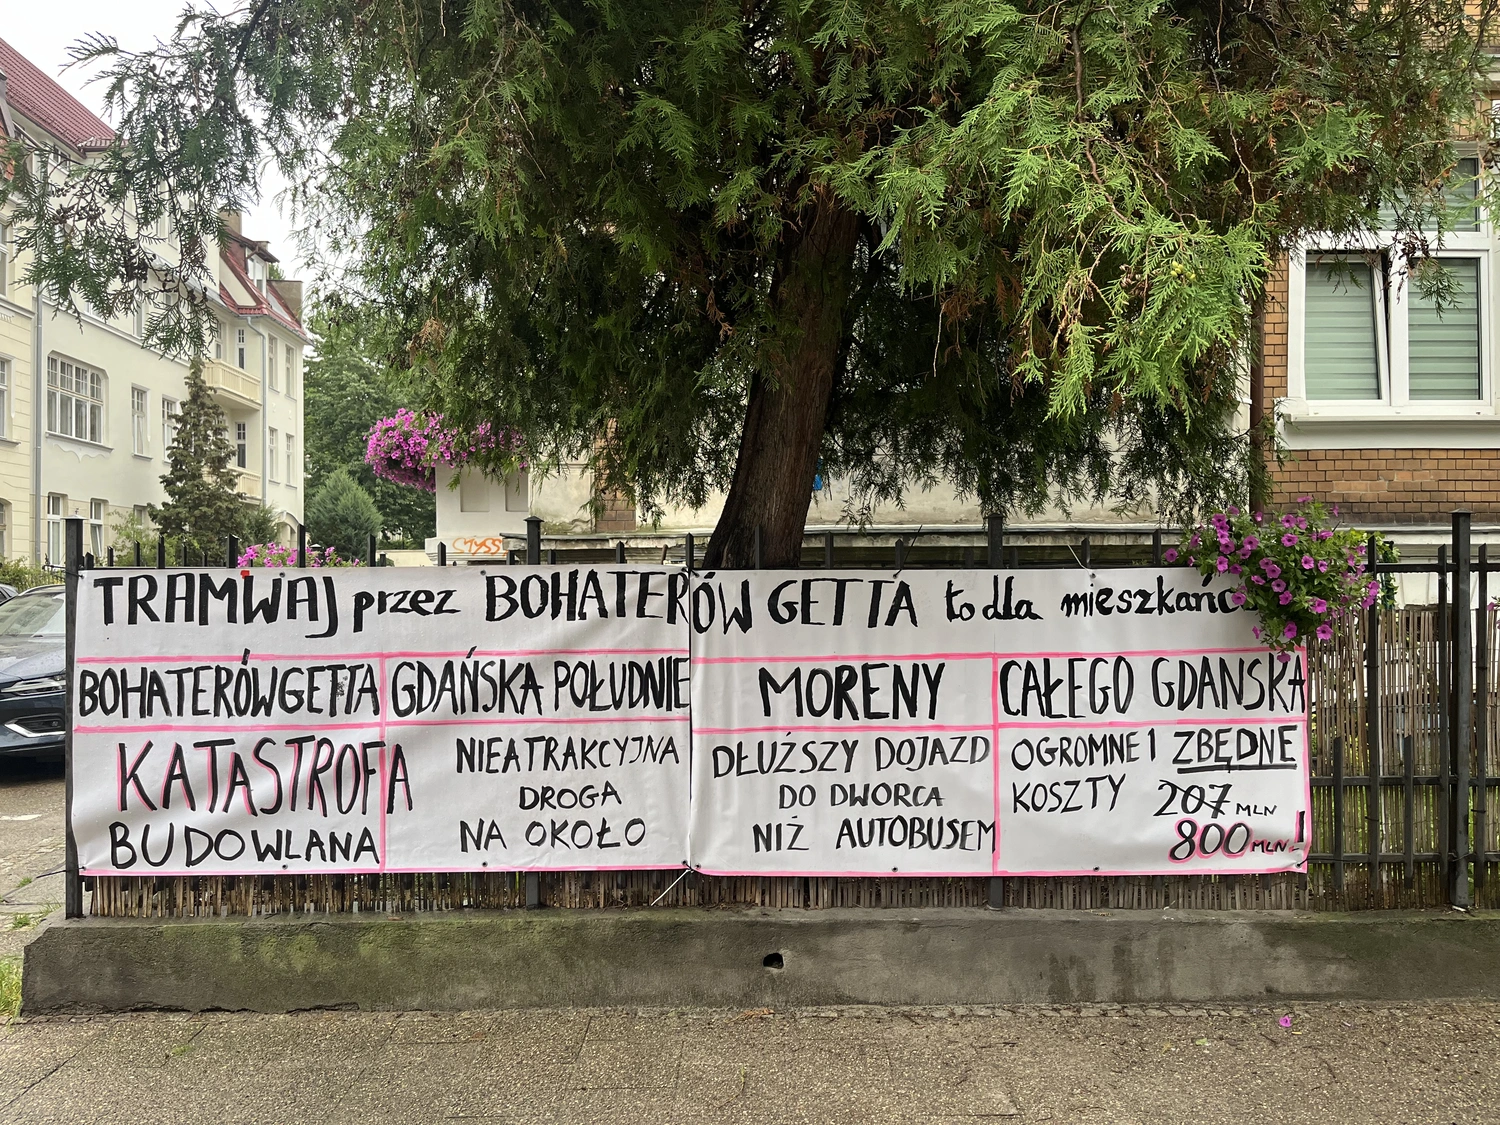 TRAMWAJ przez BOHATERÓW GETTA to dla
BOHATERÓW GETTA
KATASTROFA
BUDOWLANA
GDAŃSKA POŁUDNIE
NIEATRAKCYJNA
DROGA
NA OKOŁO
MORENY
DŁUŻSZY DOJAZD
DO DWORCA
NIŻ AUTOBUSEM
CAŁEGO GDANSKA
OGROMNE I ZBĘDNE
KOSZTY 207 MLN
800 MLN!